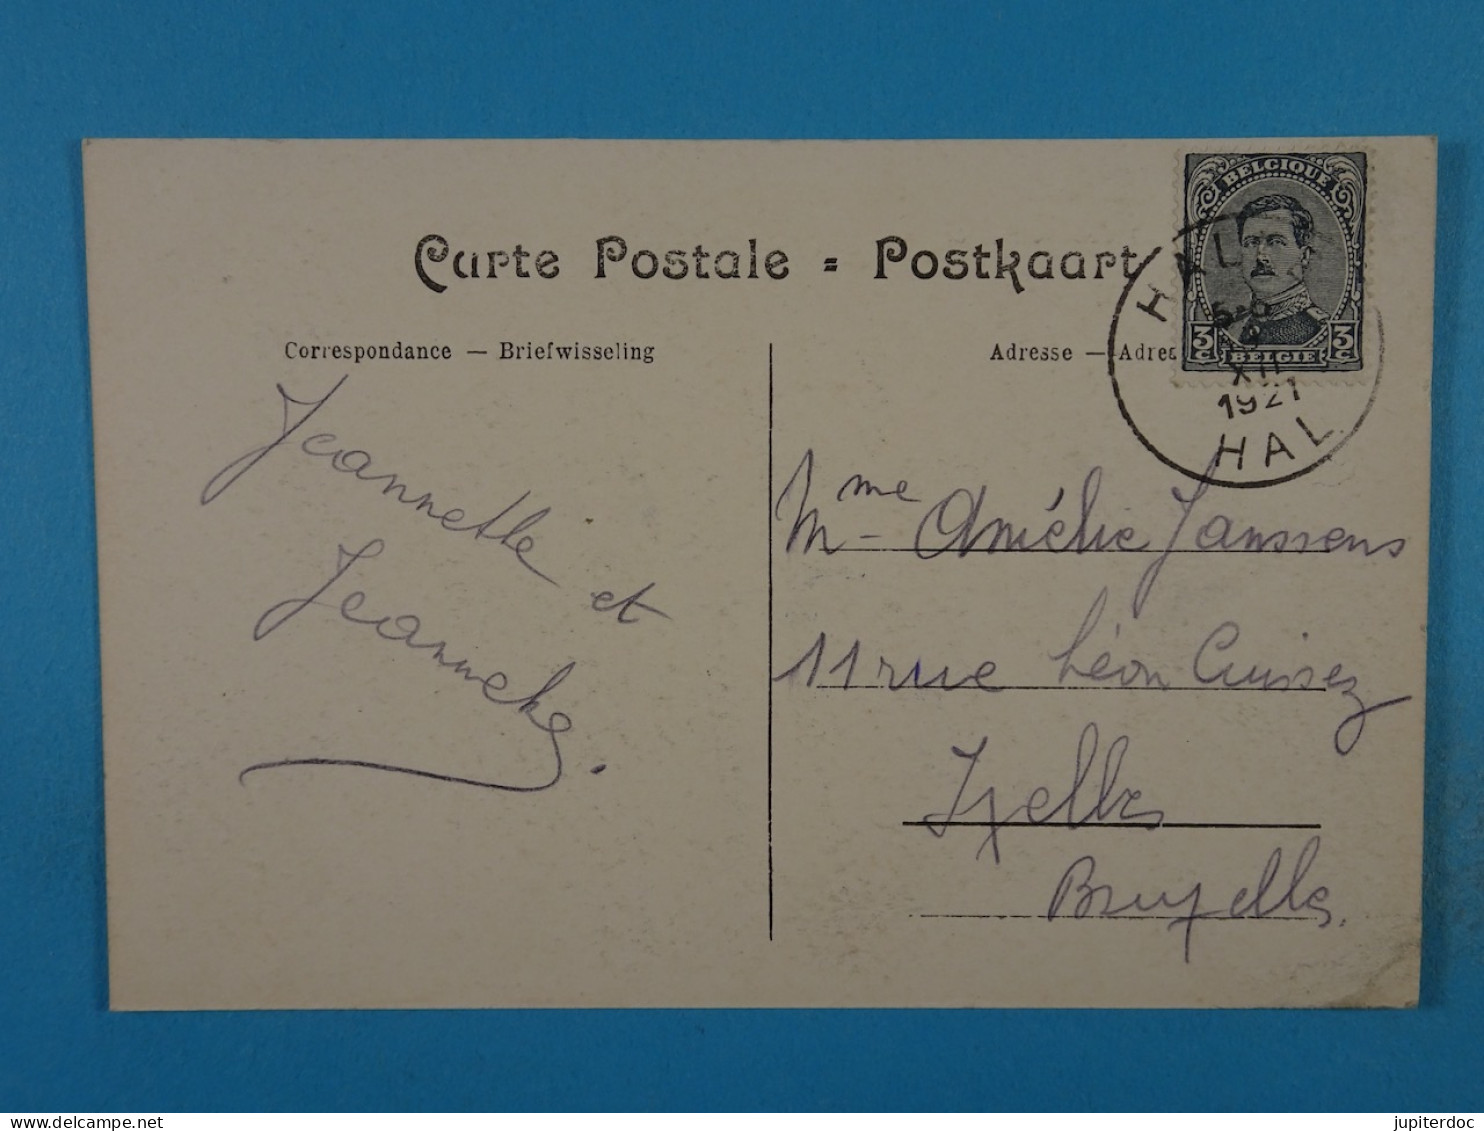 Carte Postale = Postkaart
Correspondance — Briefwisseling
Adresse — Adre
BELGIQUE
3 C 3 C
BELGIE
HAL
XII
1921
HAL
Jeannette et
Jeanneke.
Mme Amélie Janssens
11 rue Léon Cuissez
Ixelles
Bruxelles.
delcampe.net
jupiterdoc